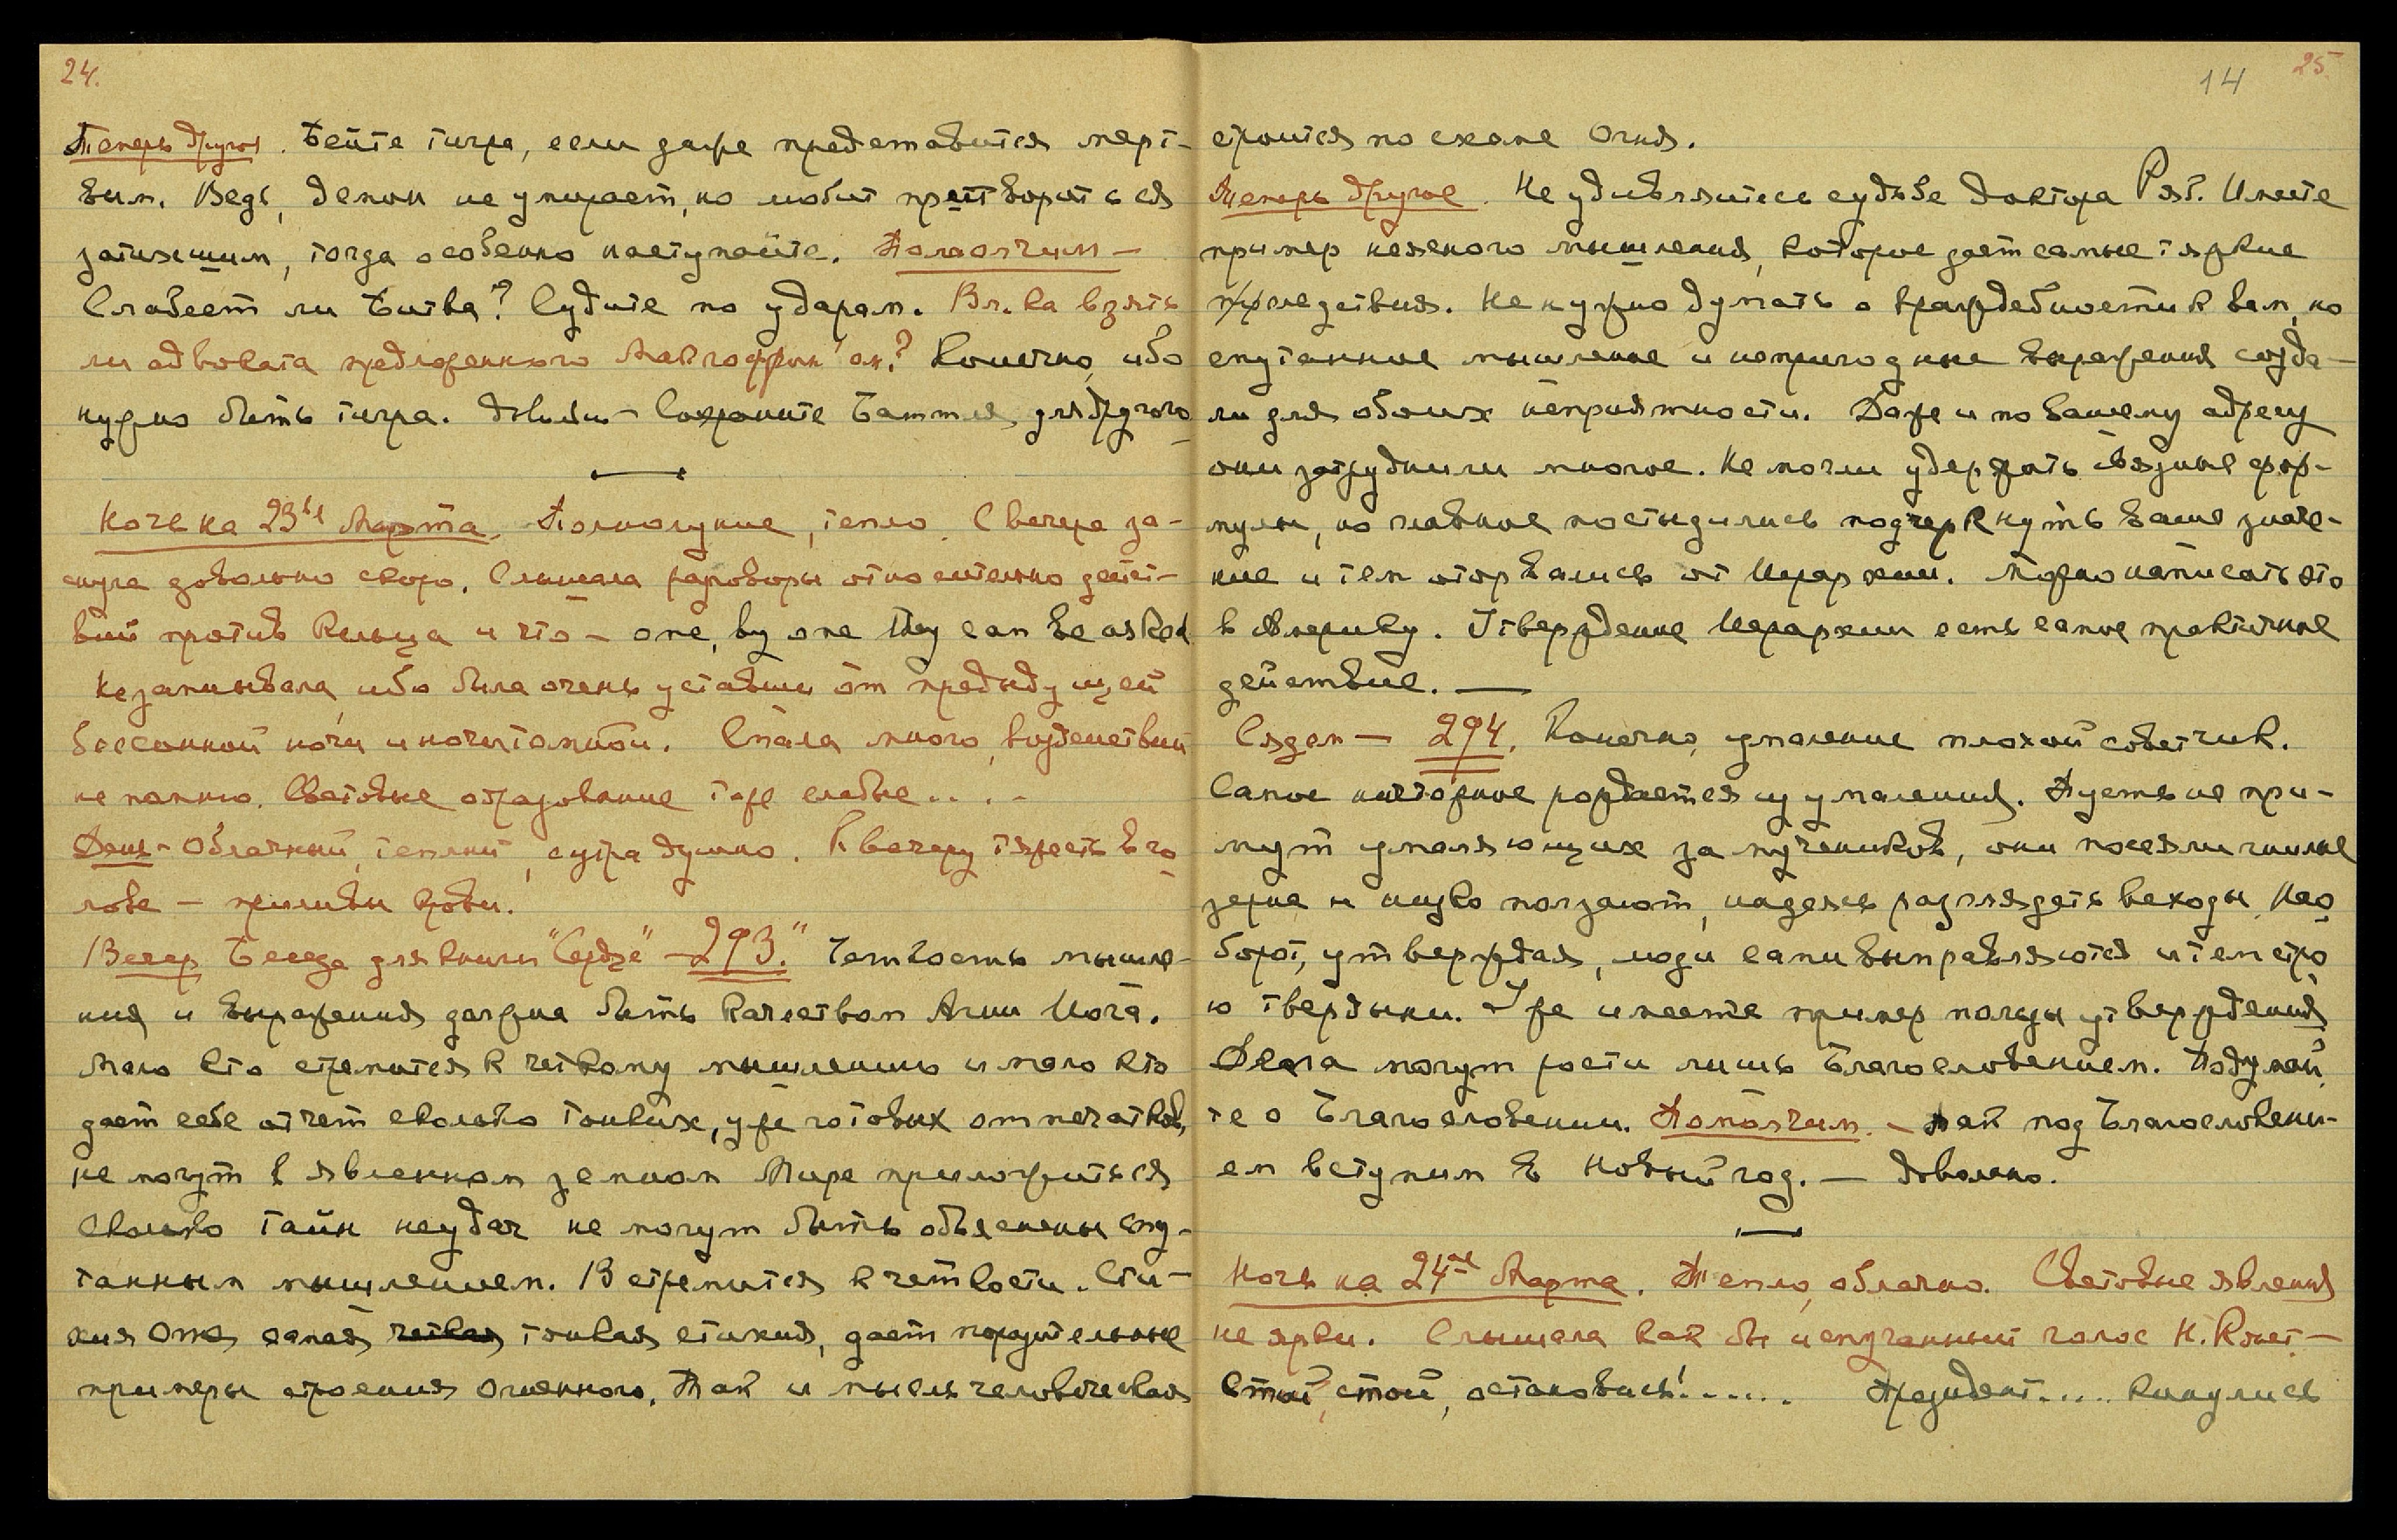 24.
Теперь другое. Бейте тигра, если даже представится мерт-
вым. Ведь, демон не умирает, но любит претворяться
затихшим, тогда особенно наступайте. Помолчим –
Слабеет ли Битва? Судите по ударам. Вл. Ка взять
ли адвоката предложенного ом? Конечно, ибо
нужно бить тигра. Довольно – Сохраните для другого
Ночь на 23ье Марта. Полнолуние, тепло. С вечера за-
снула довольно скоро. Слышала разговоры относительно дейст-
вий против Кольца и что – one, by one they can be asked
Не записывала, ибо была очень уставши от предыдущей
бессонной ночи и ночи Спала много, воздействий
не помню. Световые образования тоже слабые.. . –
День – Облачный, теплый, с утра душно. К вечеру тяжесть в го-
лове – приливы крови.
Вечер Беседа для книги "Сердце" – 293." Четкость мышле-
ния и выражения должна быть качеством Агни Йога.
Мало кто стремится к четкому мышлению и мало кто
дает себе отчет сколько тонких, уже готовых отпечатков,
не могут в явленном земном Мире приложиться
сколько тайн неудач не могут быть объяснены спу-
танным мышлением. Все стремится к четкости. Сти-
хия Огня самая четкая тонкая стихия, дает поразительные
примеры строения огненного. Так и мысль человеческая
14 25.
строится по схеме Огня.
Теперь другое. Не удивляйтесь судьбе доктора Ряб. Имеете
пример неясного мышления, которое дает самые тяжкие
последствия. Не нужно думать о враждебности к вам, но
спутанное мышление и непригодные выражения созда-
ли для обоих неприятности. Даже и по вашему адресу
они затруднили многое. Не могли удержать связные фор-
мулы, но главное постыдились подчеркнуть ваше значе-
ние и тем оторвались от Иерархии. Можно написать это
в Америку. Утверждение Иерархии есть самое практичное
действие. —
Сядем – 294. Конечно, умаление плохой советчик.
Самое ничтожное рождается из умаления. Пусть не при-
мут умаляющих за мучеников, они посеяли гнилые
зерна и низко ползают, надеясь разглядеть всходы. Нао-
борот, утверждая, люди сами выправляются и тем стро-
ю твердыни. Уже имеете пример пользы утверждения.
Дела могут расти лишь Благословением. Подумай-
те о Благословении. Помолчим. – Так под Благословени-
ем вступим в Новый год. — Довольно.
Ночь на 24ое Марта. Тепло, облачно. Световые явления
не ярки. Слышала как бы испуганный голос Н. Конст –
Стой, стой, остановись!...... Президент.... кинулись